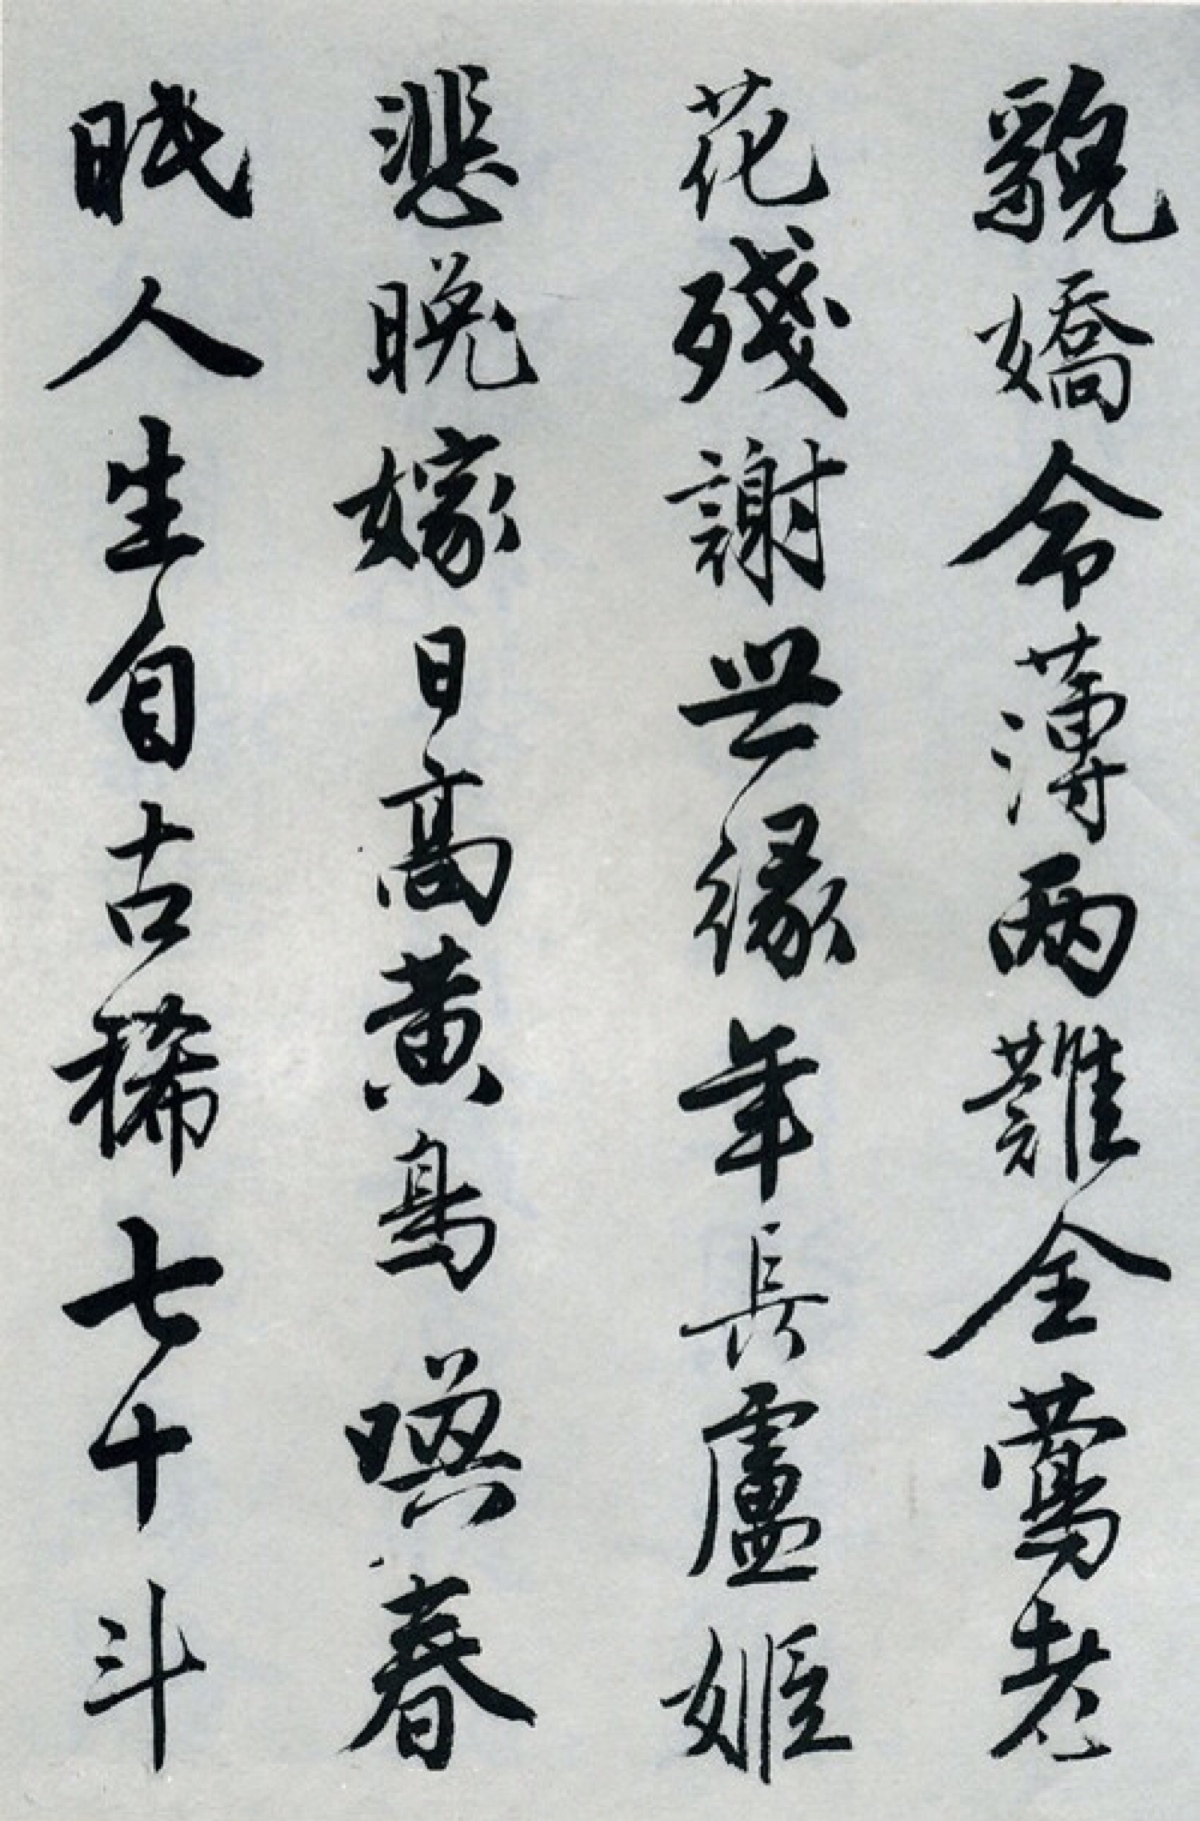 貌嬌命薄兩難全鶯老
花殘謝世緣年長盧姬
悲晚嫁日高黃鳥暝春
眠人生自古稀七十斗